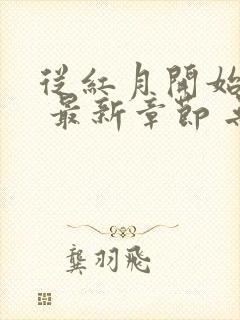 從紅月開始
最新章節
龔羽飛